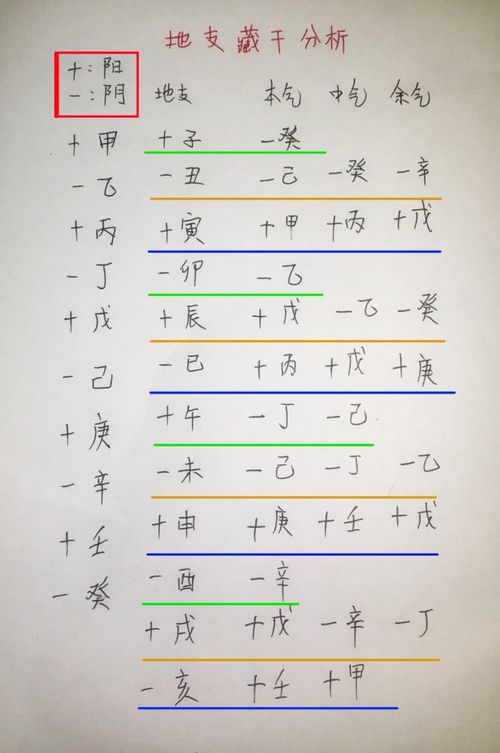 地支藏干分析
十：阳
一：阴 地支 本气 中气 余气
十甲 十子 一癸
一乙 一丑 一己 一癸 一辛
十丙 十寅 十甲 十丙 十戊
一丁 一卯 一乙
十戊 十辰 十戊 一乙 一癸
一己 一巳 十丙 十戊 十庚
十庚 十午 一丁 一己
一辛 一未 一己 一丁 一乙
十壬 十申 十庚 十壬 十戊
一癸 一酉 一辛
十戌 十戊 一辛 一丁
一亥 十壬 十甲